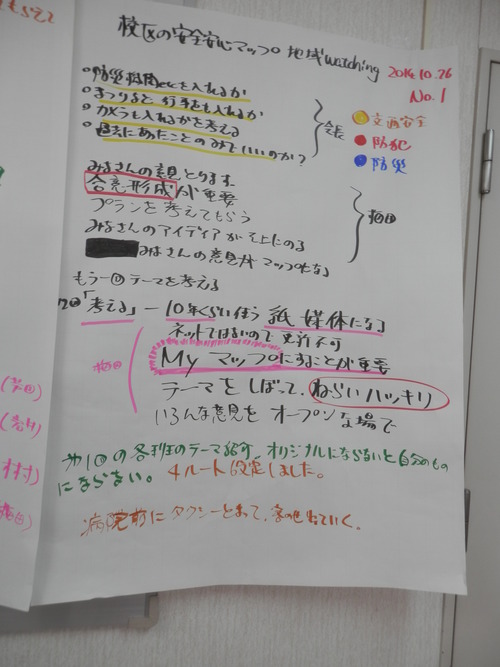 校区の安全安心マップ 地域watching 2014.10.26
No.1
○防災機関etcを入れるか
○まつりなど行事も入れるか
○カメラも入れるかを考える
○過去にあったことのみでいいのか?
会長
交通安全
防犯
防災
みなさんの意見とります
合意形成が重要
プランを考えてもらう
みなさんのアイディアがそ上にのる
みなさんの意見がマップになる
梅田
もう一回テーマを考える
「考える」― 10年くらい使う 紙媒体になる
ネットではないので更新不可
My マップにすることが重要
梅田
テーマをしぼって、ねらいハッキリ
いろんな意見をオープンな場で
第1回の各班のテーマ紹介 オリジナルにならないと自分のもの
にならない。 4ルート設定しました。
病院前にタクシーとまって、
出ていく。